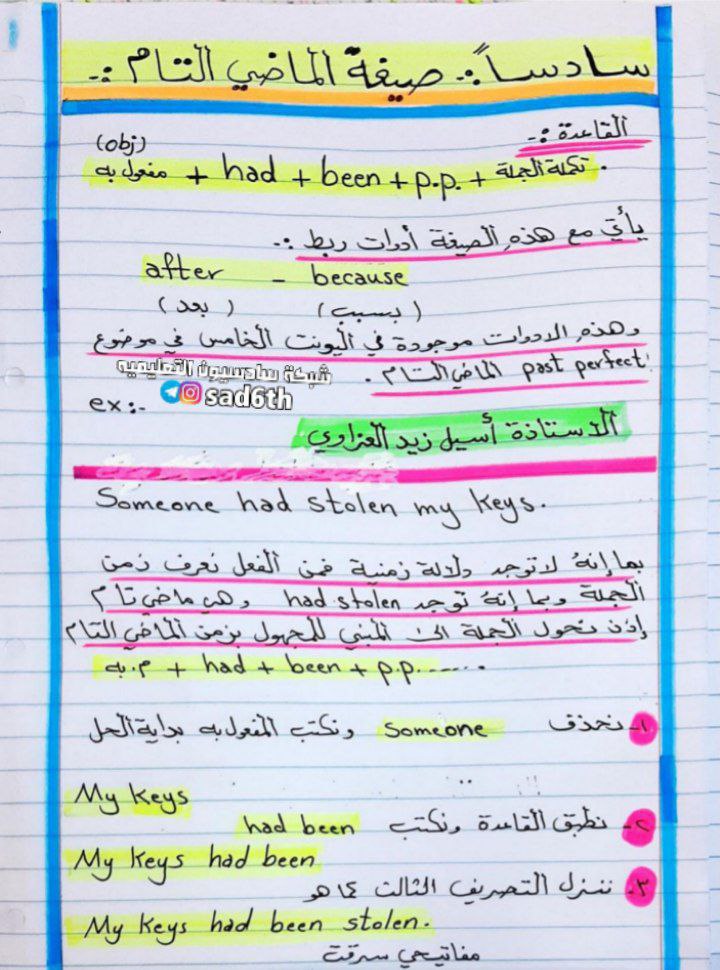 سادساً :- صيغة الماضي التام :-
القاعدة :-
(obj)
مفعول به + had + been + p.p. + تكملة الجملة .
يأتي مع هذه الصيغة أدوات ربط :-
after - because
(بعد) (بسبب)
وهذه الادوات موجودة في اليونت الخامس في موضوع
الماضي التام past perfect .
شبكة سادسيون التعليميه
sad6th
ex:-
الاستاذة أسيل زيد العزاوي
Someone had stolen my keys.
بما إنهُ لا توجد دلالة زمنية فمن الفعل نعرف زمن
الجملة وبما إنهُ توجد had stolen وهي ماضي تام
إذن نحول الجملة الى المبني للمجهول بزمن الماضي التام
م.به + had + been + p.p.......
١- نحذف someone ونكتب المفعول به بداية الحل
My keys
٢- نطبق القاعدة ونكتب had been
My keys had been
٣- ننزل التصريف الثالث ١٤ هو
My keys had been stolen.
مفاتيحي سرقت